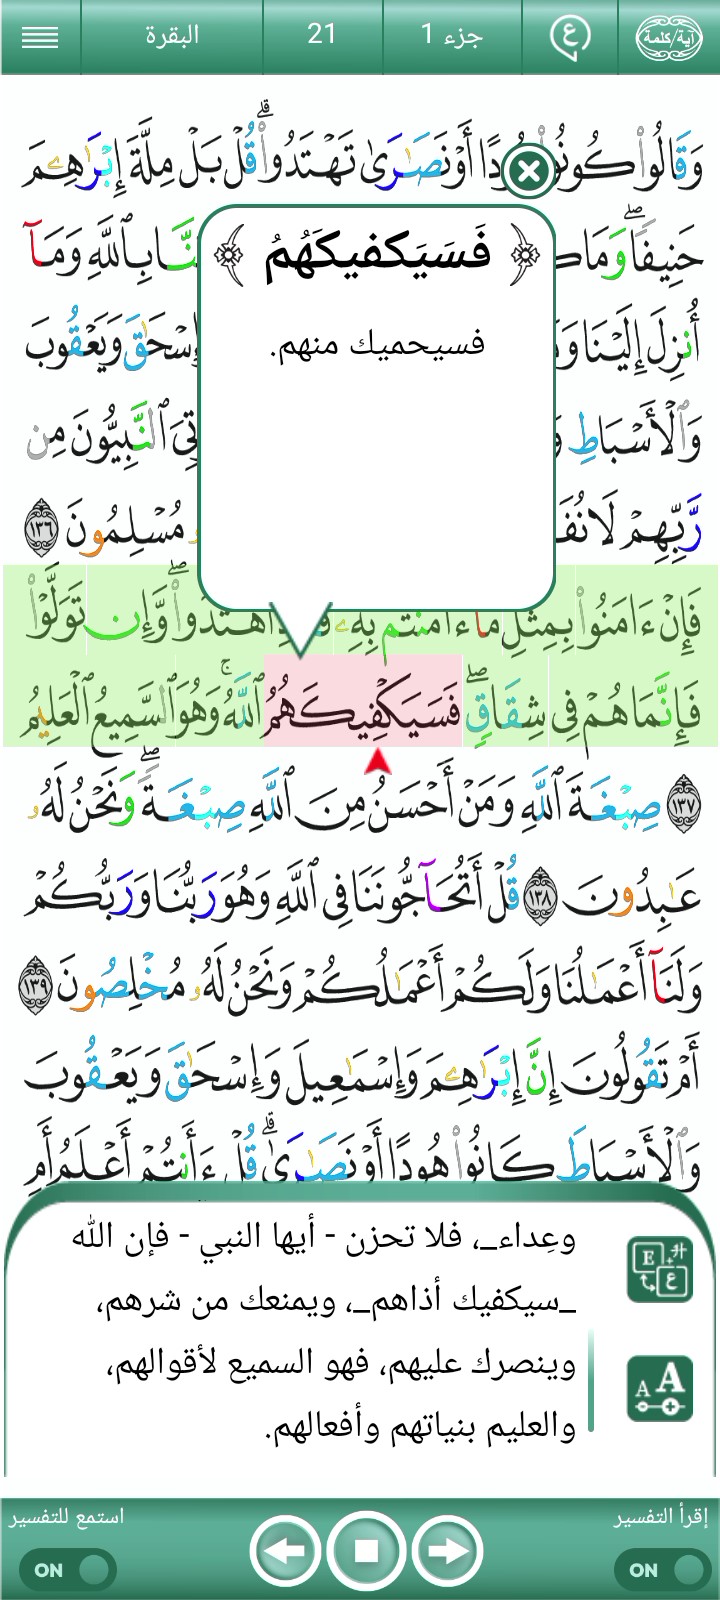 آية/كلمة
ع
جزء 1
21
البقرة
وَقَالُوا۟ كُونُوا۟ أَوْ نَصَـٰرَىٰ تَهْتَدُوا۟ ۗ قُلْ بَلْ مِلَّةَ إِبْرَٰهِـۧمَ
حَنِيفًا ۖ وَمَا بِٱللَّهِ وَمَآ
أُنزِلَ إِلَيْنَا وَيَعْقُوبَ
وَٱلْأَسْبَاطِ ٱلنَّبِيُّونَ مِن
رَّبِّهِمْ لَا مُسْلِمُونَ ١٣٦
﴿ فَسَيَكفيكَهُمُ ﴾
فسيحميك منهم.
فَإِنْ ءَامَنُوا۟ بِمِثْلِ مَآ ءَامَنتُم بِهِۦ ٱهْتَدَوا۟ ۖ وَّإِن تَوَلَّوْا۟
فَإِنَّمَا هُمْ فِى شِقَاقٍ ۖ فَسَيَكْفِيكَهُمُ ٱللَّهُ ۚ وَهُوَ ٱلسَّمِيعُ ٱلْعَلِيمُ
١٣٧ صِبْغَةَ ٱللَّهِ ۖ وَمَنْ أَحْسَنُ مِنَ ٱللَّهِ صِبْغَةً ۖ وَنَحْنُ لَهُۥ
عَـٰبِدُونَ ١٣٨ قُلْ أَتُحَآجُّونَنَا فِى ٱللَّهِ وَهُوَ رَبُّنَا وَرَبُّكُمْ
وَلَنَآ أَعْمَـٰلُنَا وَلَكُمْ أَعْمَـٰلُكُمْ وَنَحْنُ لَهُۥ مُخْلِصُونَ ١٣٩
أَمْ تَقُولُونَ إِنَّ إِبْرَٰهِـۧمَ وَإِسْمَـٰعِيلَ وَإِسْحَـٰقَ وَيَعْقُوبَ
وَٱلْأَسْبَاطَ كَانُوا۟ هُودًا أَوْ نَصَـٰرَىٰ ۗ قُلْ ءَأَنتُمْ أَعْلَمُ أَمِ
وعِداء_، فلا تحزن - أيها النبي - فإن الله
_سيكفيك أذاهم_، ويمنعك من شرهم،
وينصرك عليهم، فهو السميع لأقوالهم،
والعليم بنياتهم وأفعالهم.
إقرأ التفسير
ON
استمع للتفسير
ON